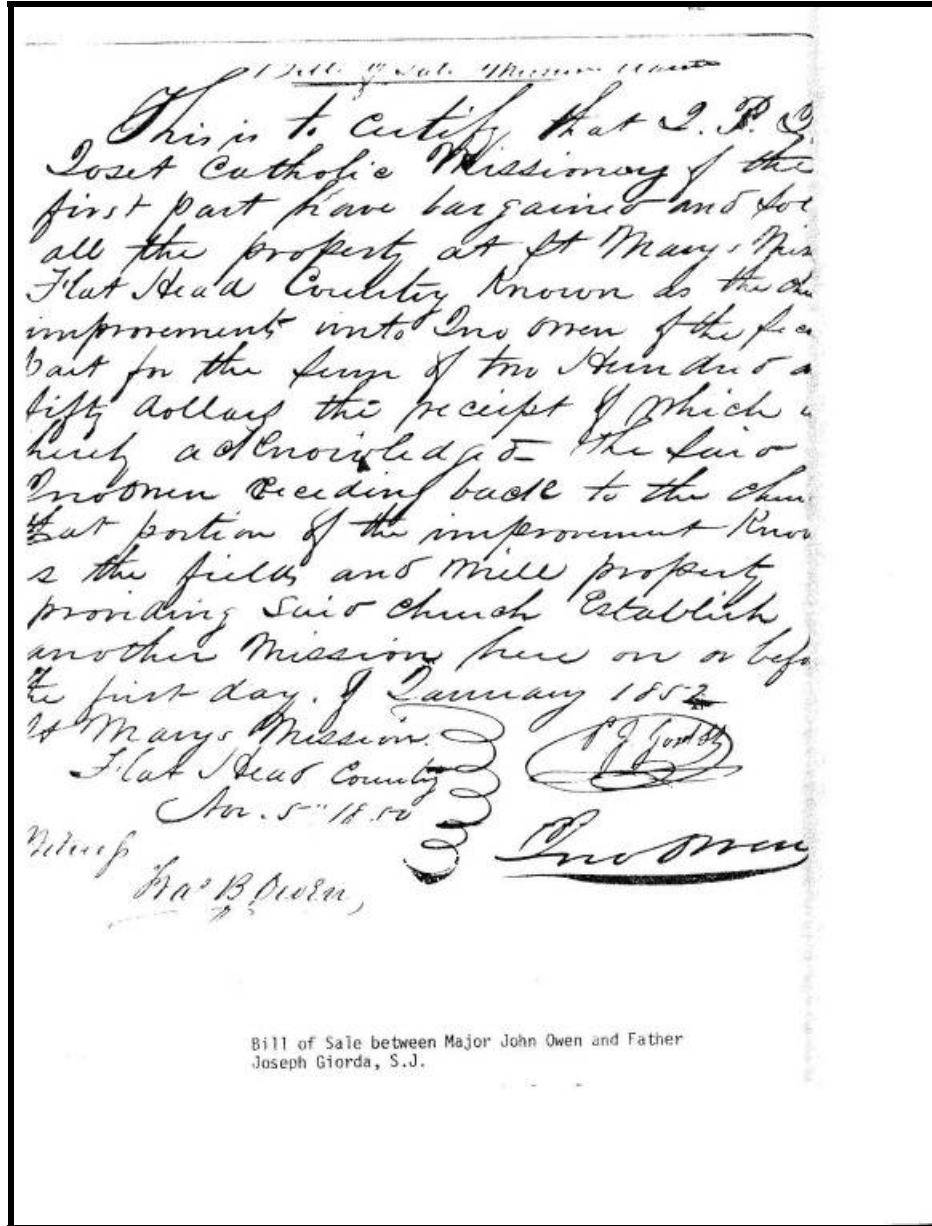 Bill of Sale Mission
This is to certify that I. P. G.
Joset Catholic Missionary of the
first part have bargained and sol
all the property at St Marys Miss
Flat Head County Known as the
improvements unto Jno Owen of the Sec
part for the sum of two Hundred a
fifty dollars the receipt of which
hereby acKnowledged The Said
Jno Owen receding back to the chu
that portion of the improvement Know
s the fields and Mill property
providing Said church Establish
another Mission here on or befo
the first day of January 1852
St Marys Mission.
Flat Head County
Nov. 5" 1850
Witness
Jno Owen
Fras B Owen,
Bill of Sale between Major John Owen and Father
Joseph Giorda, S.J.